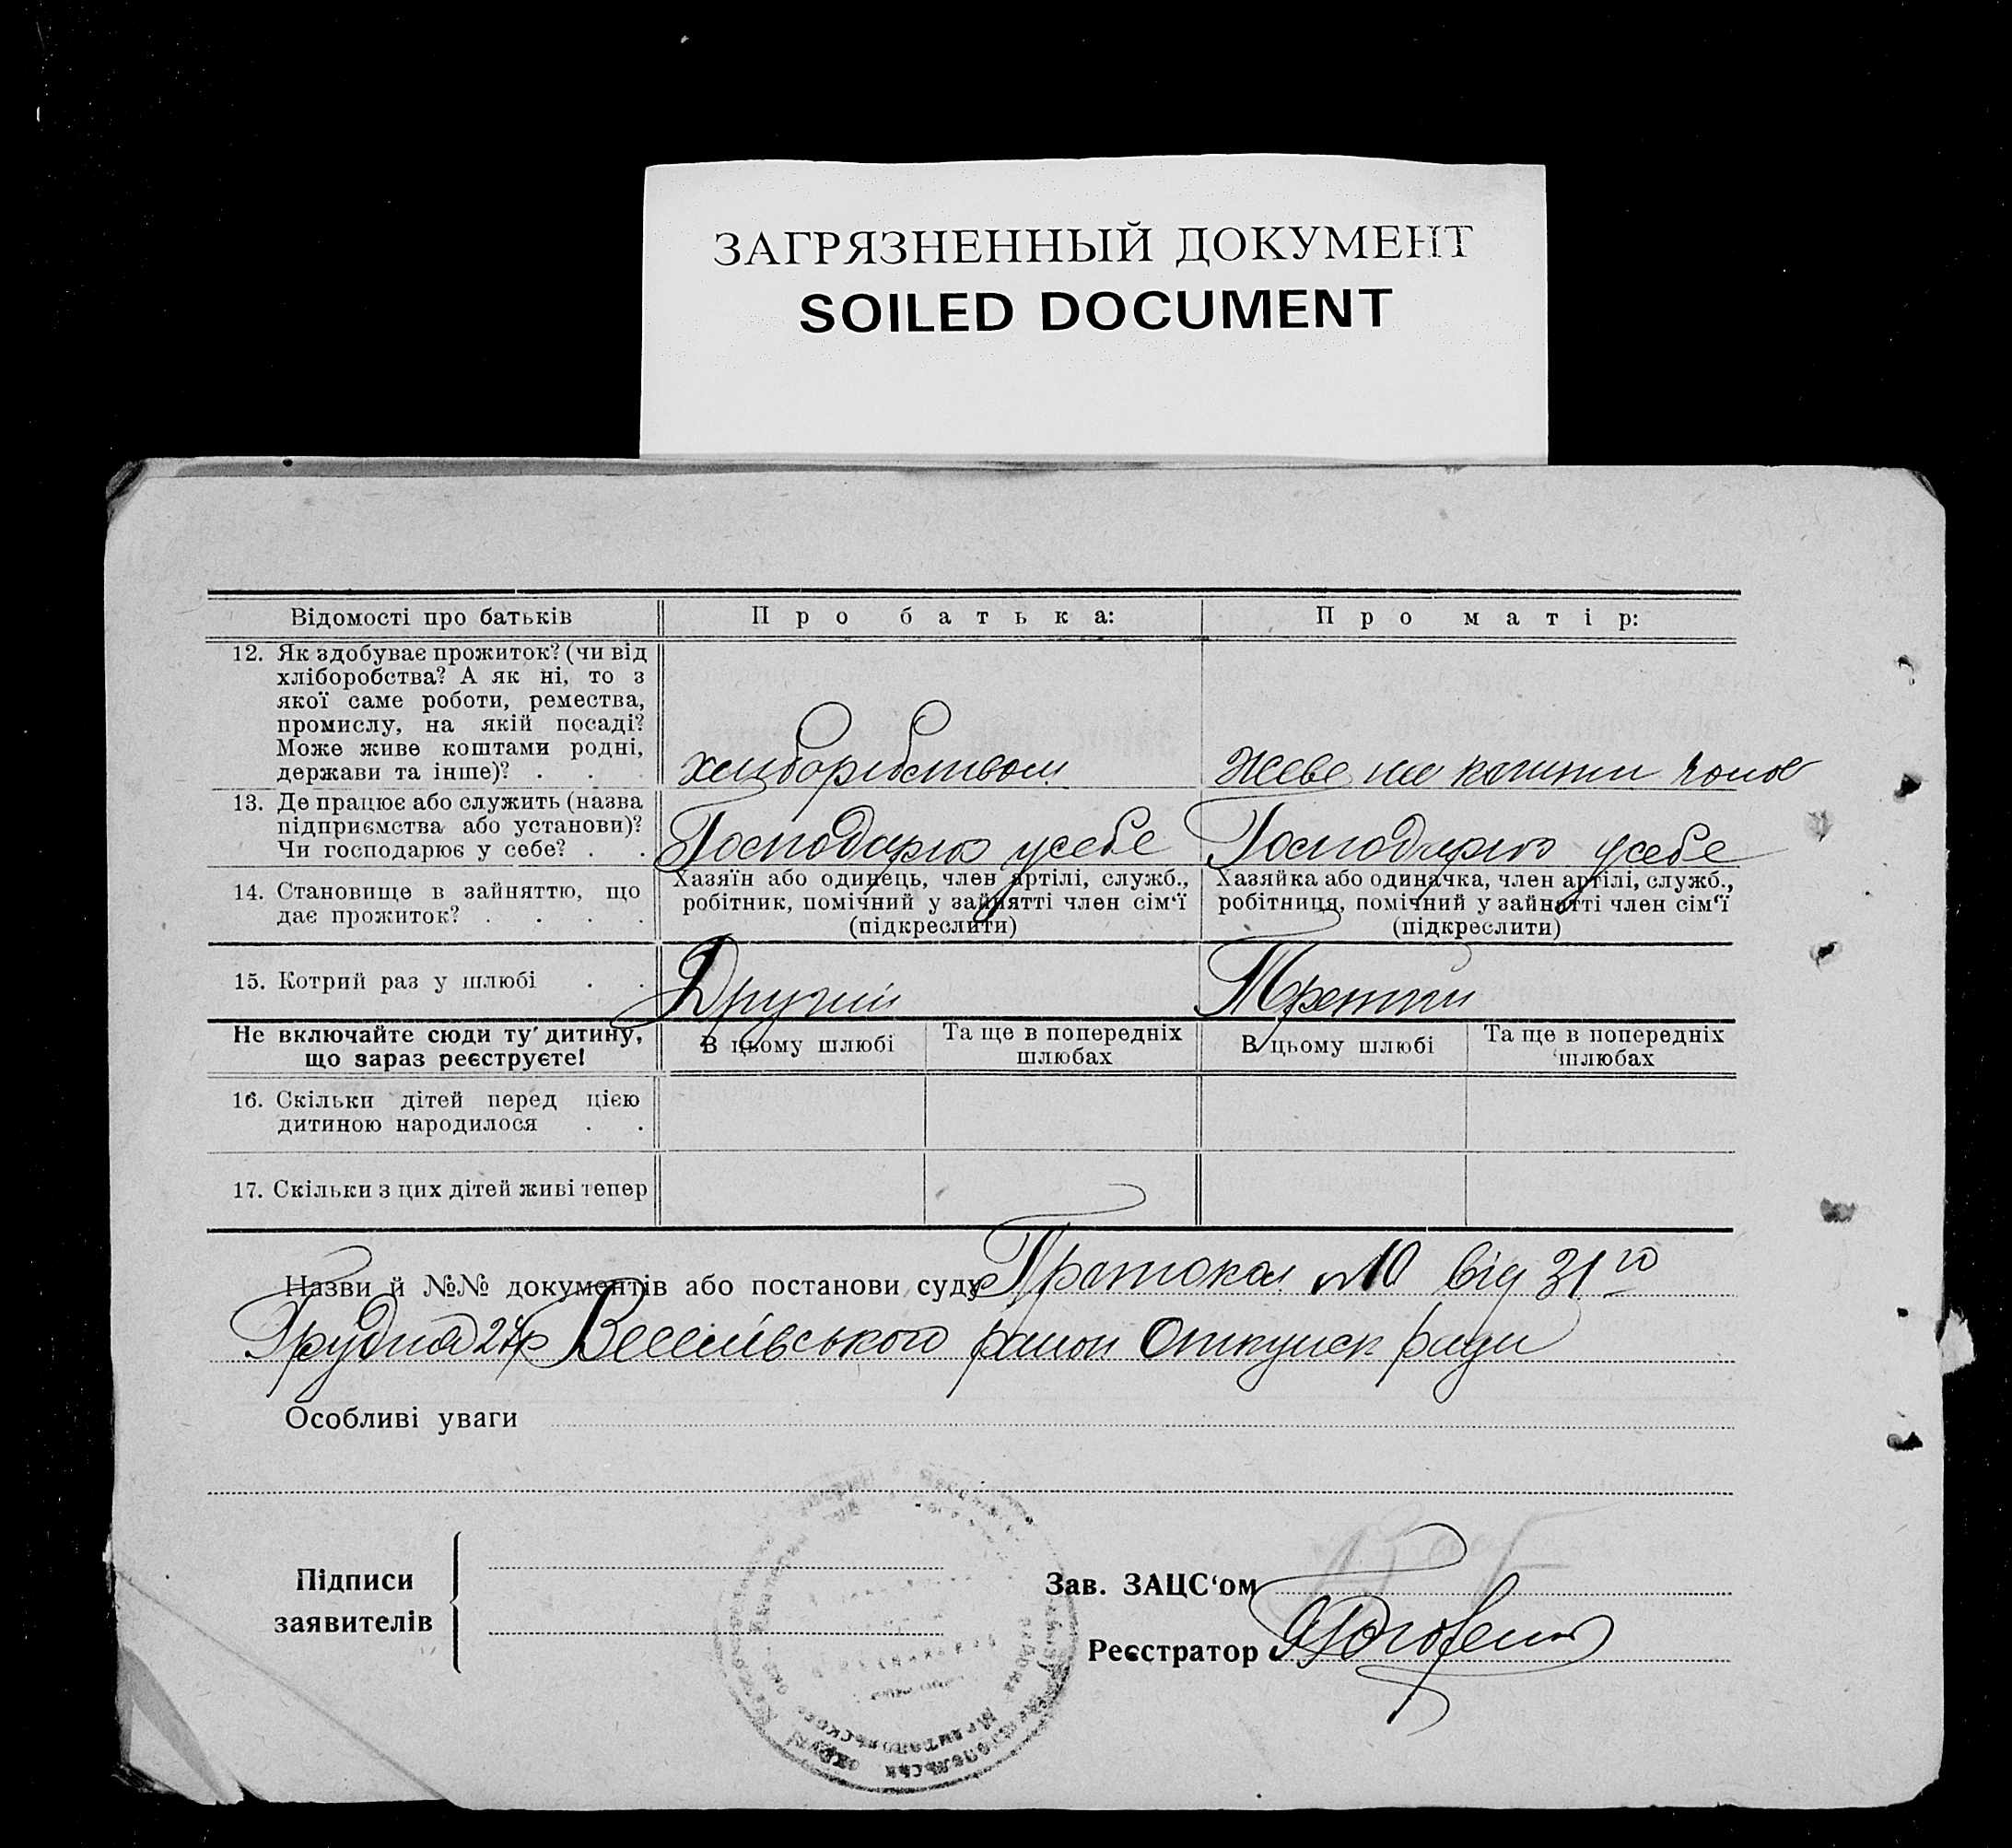 ЗАГРЯЗНЕННЫЙ ДОКУМЕНТ
SOILED DOCUMENT
Відомості про батьків
Про батька:
Про матір:
12. Як здобуває прожиток? (чи від
хліборобства? А як ні, то з
якої саме роботи, ремества,
промислу, на якій посаді?
Може живе коштами родні,
держави та інше)? . . .
хліборобством
Жеве на кошти чолов
13. Де працює або служить (назва
підприємства або установи)?
Чи господарює у себе? . .
Господарює усебе
Господарює усебе
14. Становище в зайняттю, що
дає прожиток? . . . .
Хазяїн або одинець, член артілі, служб.,
робітник, помічний у зайнятті член сім‘ї
(підкреслити)
Хазяйка або одиначка, член артілі, служб.,
робітниця, помічний у зайнятті член сім‘ї
(підкреслити)
15. Котрий раз у шлюбі . .
Другий
Третий
Не включайте сюди ту дитину,
що зараз реєструєте!
В цьому шлюбі
Та ще в попередніх
шлюбах
В цьому шлюбі
Та ще в попередніх
шлюбах
16. Скільки дітей перед цією
дитиною народилося . .
17. Скільки з цих дітей живі тепер
Назви й №№ документів або постанови суду Протокол №10 від 31го
Грудня 27р Веселівського район Опікунск ради
Особливі уваги
Підписи
заявителів
Зав. ЗАЦС‘ом
Реєстратор